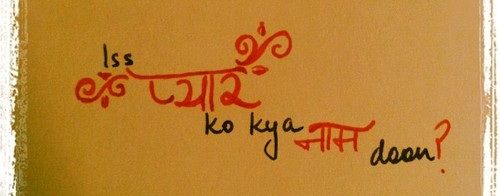 Iss
प्यार
ko kya नाम doon?